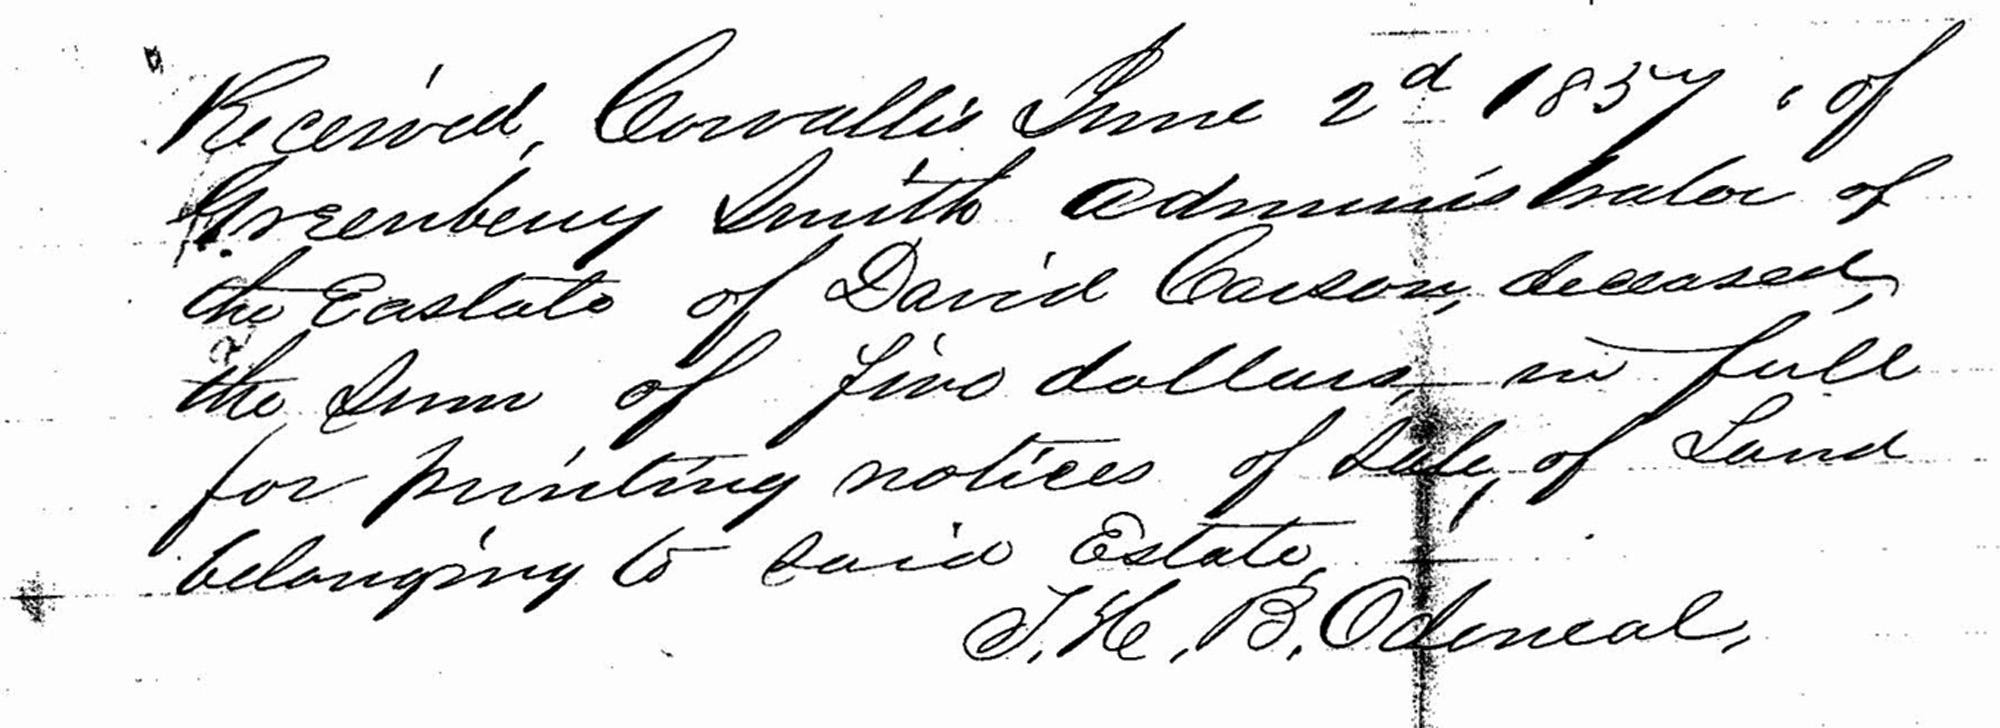 Received, Corvallis June 2d 1857, of
Greenbery Smith Administrator of
the Eastate of David Carson, deceased,
the Sum of five dollars, in full
for printing notices of Sale, of Land
belonging to said Estate,
T. H. B. Odeneal,